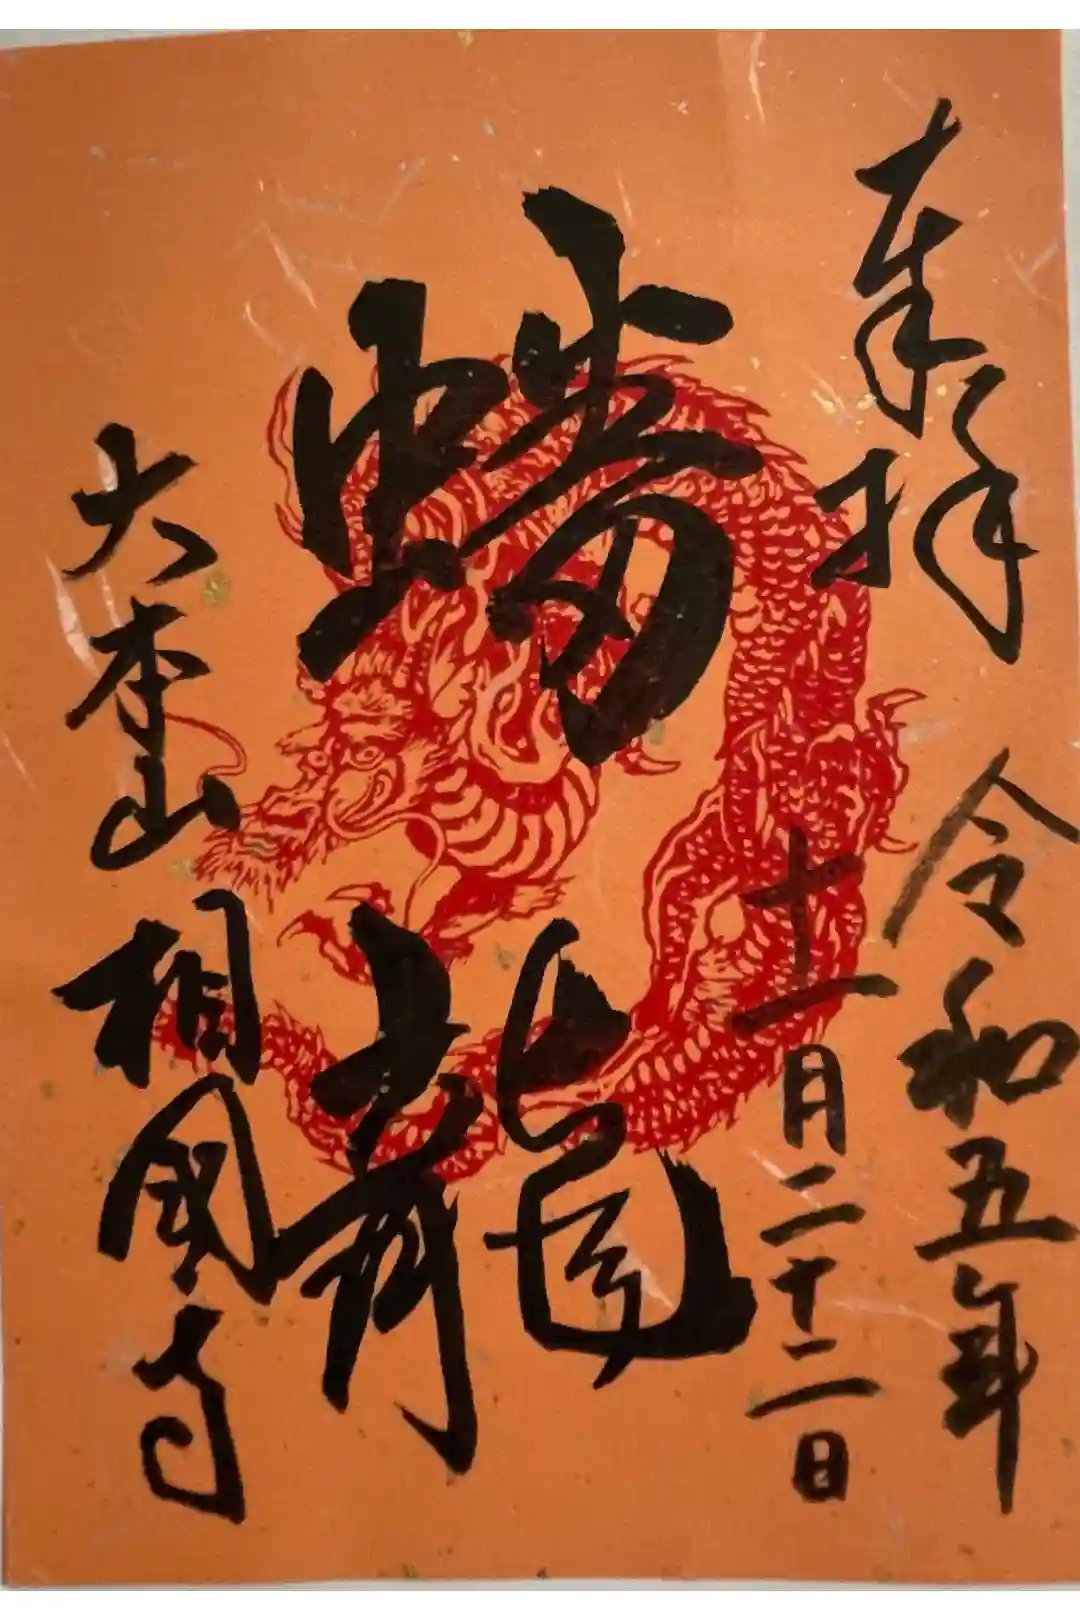 奉拝
令和五年
十一月二十二日
蟠龍
大本山相國寺